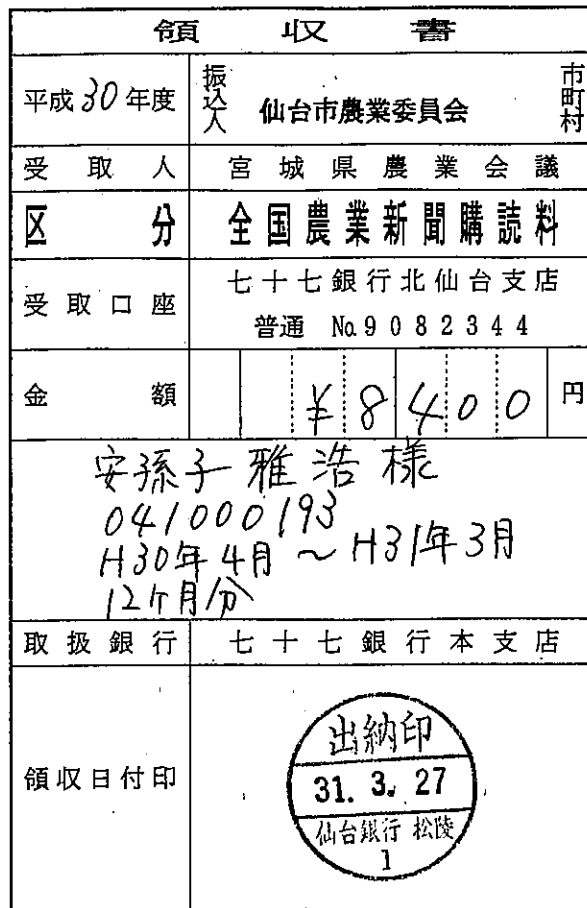 領収書
平成30年度 振込人 仙台市農業委員会 市町村
受取人 宮城県農業会議
区分 全国農業新聞購読料
受取口座 七十七銀行北仙台支店
普通 No.9082344
金額 ¥8400円
安孫子雅浩様
041000193
H30年4月～H31年3月
12ケ月分
取扱銀行 七十七銀行本支店
領収日付印
出納印
31. 3. 27
仙台銀行 松陵
1